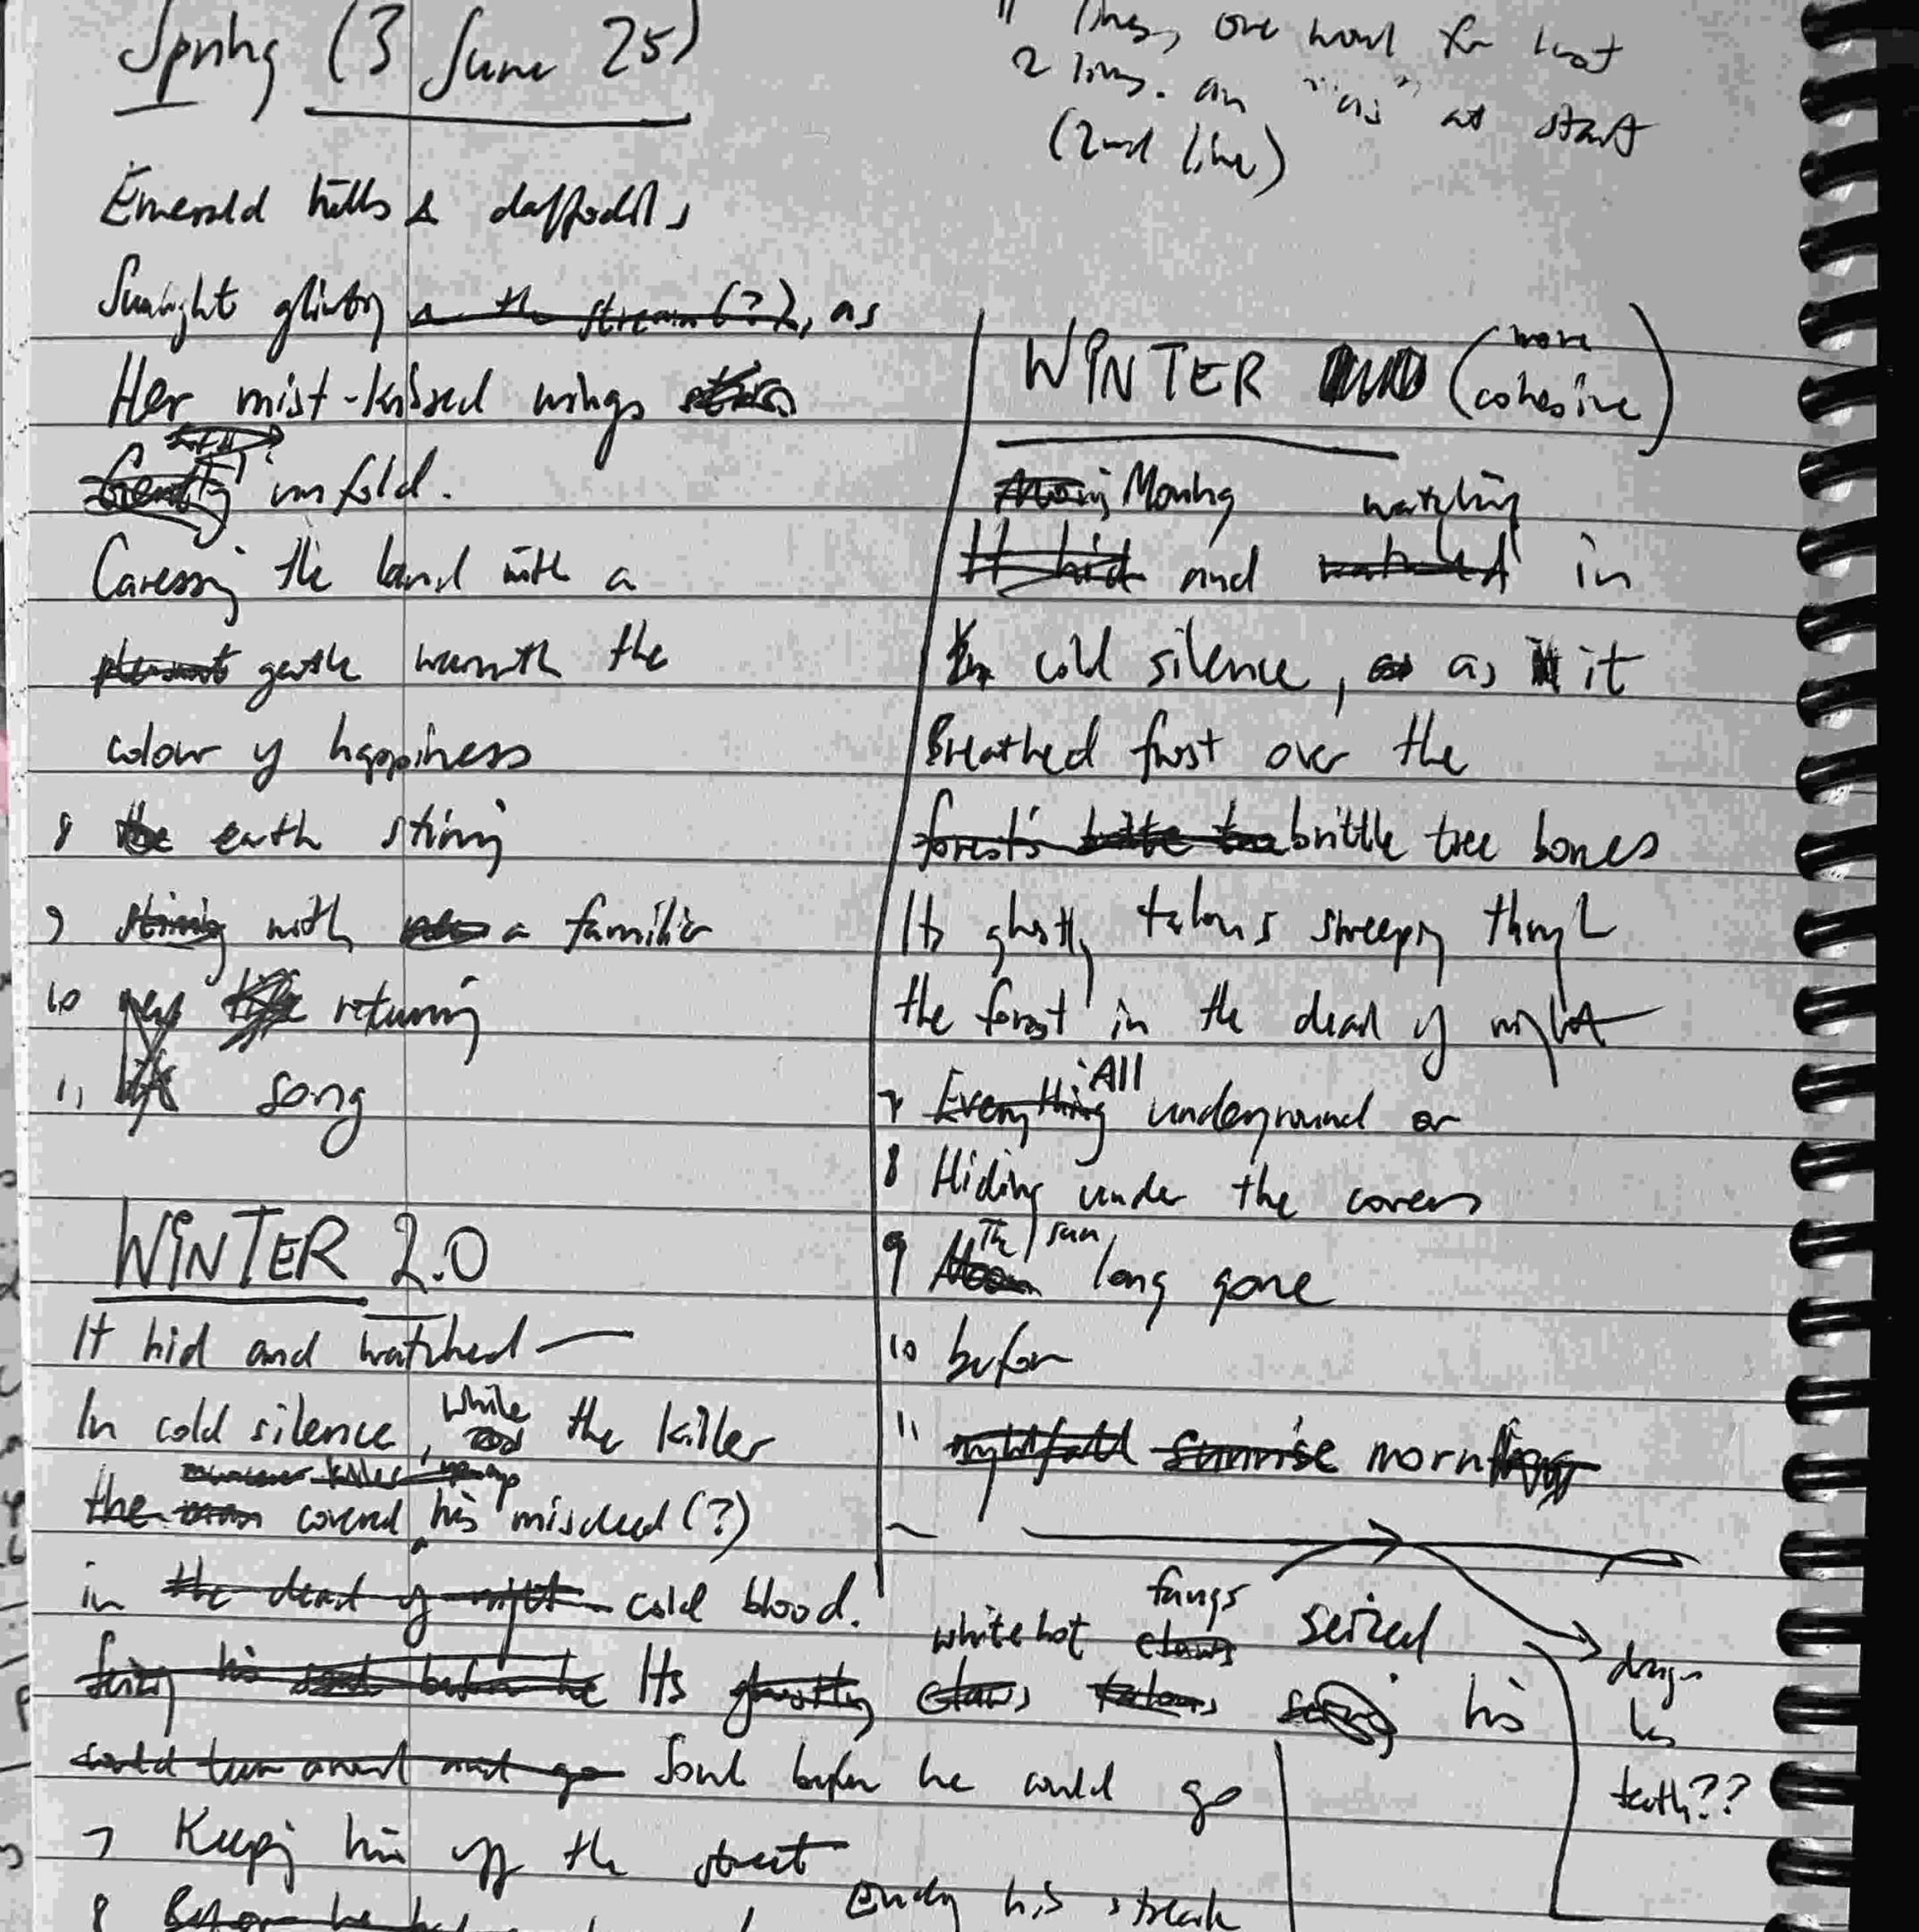 Spring (3 June 25)
11 lines, one word for last
2 lines. an "as" at start
(2nd line)
Emerald hills & daffodils
Sunlight glinting on the stream (?), as
Her mist-kissed wings
Gently unfold.
Caressing the land with a
pleasant gentle warmth the
colour of happiness
8 the earth stirring
9 stirring with a familiar
10 returning
11 song
WINTER 2.0
It hid and watched —
In cold silence, while the killer
the man covered his misdeed (?)
in the dead of night cold blood.
Its ghostly claws talons his
white hot claws fangs seized
could turn around and go Soul before he could go
7 Keeping him off the street
8 Before he
Ending his streak
WINTER (more cohesive)
Moving Moving watching
It hid and watched in
In cold silence, as it
Breathed frost over the
forest's brittle tree bones
Its ghostly talons sweeping through
the forest in the dead of night
7 Everything All underground or
8 Hiding under the covers
9 Moon The sun, long gone
10 before
11 nightfall sunrise morning
teeth??